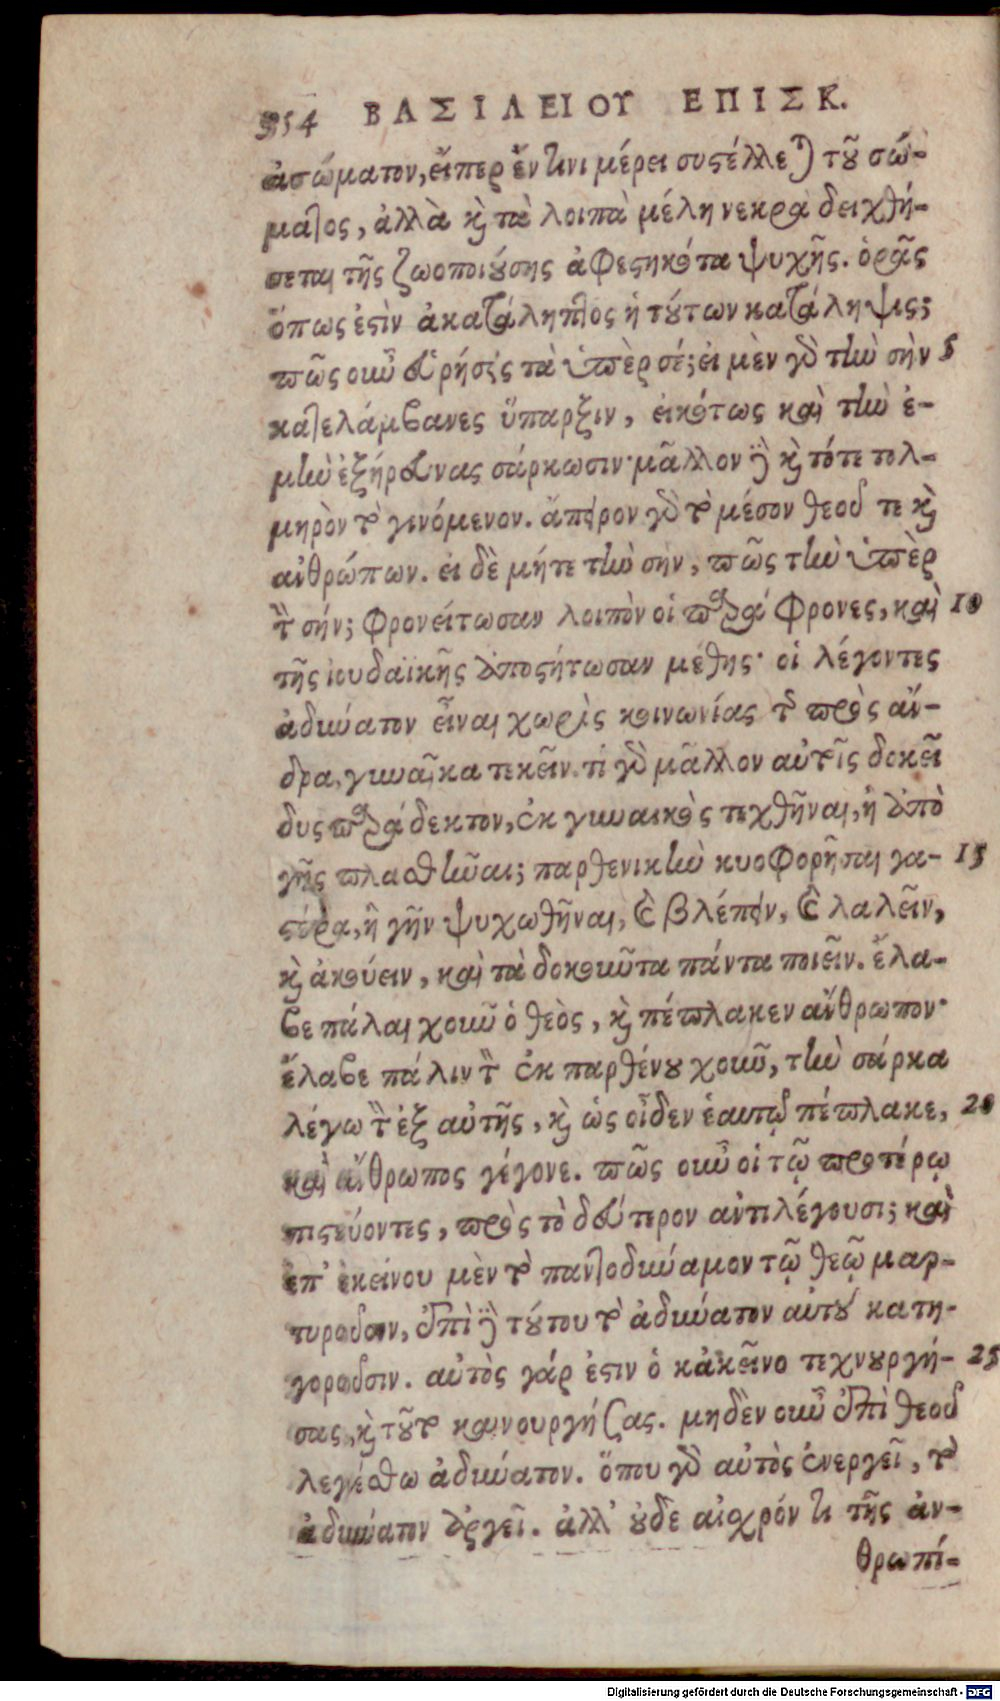 354 ΒΑΣΙΛΕΙΟΥ ΕΠΙΣΚ.
ἀσώματον, εἴπερ ἔν τινι μέρει συστέλλεται τοῦ σώ-
ματος, ἀλλὰ καὶ τὰ λοιπὰ μέλη νεκρὰ δειχθή-
σεται τῆς ζωοποιούσης ἀφεστηκότα ψυχῆς. ὁρᾷς
ὅπως ἐστὶν ἀκατάληπτος ἡ τούτων κατάληψις;
πῶς οὖν εὑρήσεις τὰ ὑπὲρ σέ; εἰ μὲν γὰρ τὴν σὴν 5
κατελάμβανες ὕπαρξιν, εἰκότως καὶ τὴν ἐ-
μὴν ἐξηρεύνας σάρκωσιν· μᾶλλον δὲ καὶ τότε τολ-
μηρὸν τὸ γινόμενον. ἄπειρον γὰρ τὸ μέσον θεοῦ τε καὶ
ἀνθρώπων. εἰ δὲ μήτε τὴν σὴν, πῶς τὴν ὑπὲρ
τὴν σήν; φρονείτωσαν λοιπὸν οἱ παράφρονες, καὶ 10
τῆς ἰουδαϊκῆς ἀποστήτωσαν μέθης· οἱ λέγοντες
ἀδύνατον εἶναι χωρὶς κοινωνίας τῆς πρὸς ἄν-
δρα, γυναῖκα τεκεῖν. τί γὰρ μᾶλλον αὐτοῖς δοκεῖ
δυσπαράδεκτον, ἐκ γυναικὸς τεχθῆναι, ἢ ἀπὸ
γῆς πλασθῆναι; παρθενικὴν κυοφορῆσαι γα- 15
στέρα, ἢ γῆν ψυχωθῆναι, καὶ βλέπειν, καὶ λαλεῖν,
καὶ ἀκούειν, καὶ τὰ δοκοῦντα πάντα ποιεῖν. ἔλα-
βε πάλαι χοῦν ὁ θεὸς, καὶ πέπλακεν ἄνθρωπον·
ἔλαβε πάλιν τὸν ἐκ παρθένου χοῦν, τὴν σάρκα
λέγω τὴν ἐξ αὐτῆς, καὶ ὡς οἶδεν ἑαυτῷ πέπλακε, 20
καὶ ἄνθρωπος γέγονε. πῶς οὖν οἱ τῷ προτέρῳ
πιστεύοντες, πρὸς τὸ δεύτερον ἀντιλέγουσι; καὶ
ἐπ' ἐκείνου μὲν τὸ παντοδύναμον τῷ θεῷ μαρ-
τυροῦσιν, ἐπὶ δὲ τούτου τὸ ἀδύνατον αὐτοῦ κατη-
γοροῦσιν. αὐτὸς γάρ ἐστιν ὁ κἀκεῖνο τεχνουργή- 25
σας, καὶ τοῦτο καινουργήσας. μηδὲν οὖν ἐπὶ θεοῦ
λεγέσθω ἀδύνατον. ὅπου γὰρ αὐτὸς ἐνεργεῖ, τὸ
ἀδύνατον ἀργεῖ. ἀλλ' οὐδὲ αἰσχρόν τι τῆς ἀν-
θρωπί-
Digitalisierung gefördert durch die Deutsche Forschungsgemeinschaft - DFG